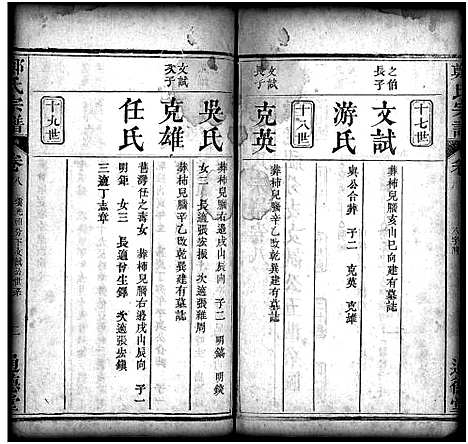 十七世
之伯
長子
文試
葬柿兒腦亥山巳向建有墓誌
游氏
與公合葬 子二 克英 克雄
十八世
文試
長子
克英
葬柿兒腦辛乙改乾巽建有墓誌
吳氏
葬柿兒腦右邊戌山辰向 子二 明鎬 明鐭
女三 長適張宏振 次適張維周
文試
次子
克雄
葬柿兒腦辛乙改乾巽建有墓誌
任氏
舊灣任之海女 葬柿兒腦右邊戌山辰向 子一
明鉅 女三 長適曾生鐸 次適張宏鎮
三適丁志章
十九世
鄭氏宗譜
卷八